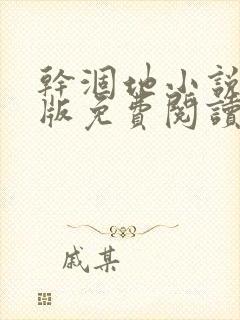 幹涸地小説
版免費閱讀
戚某